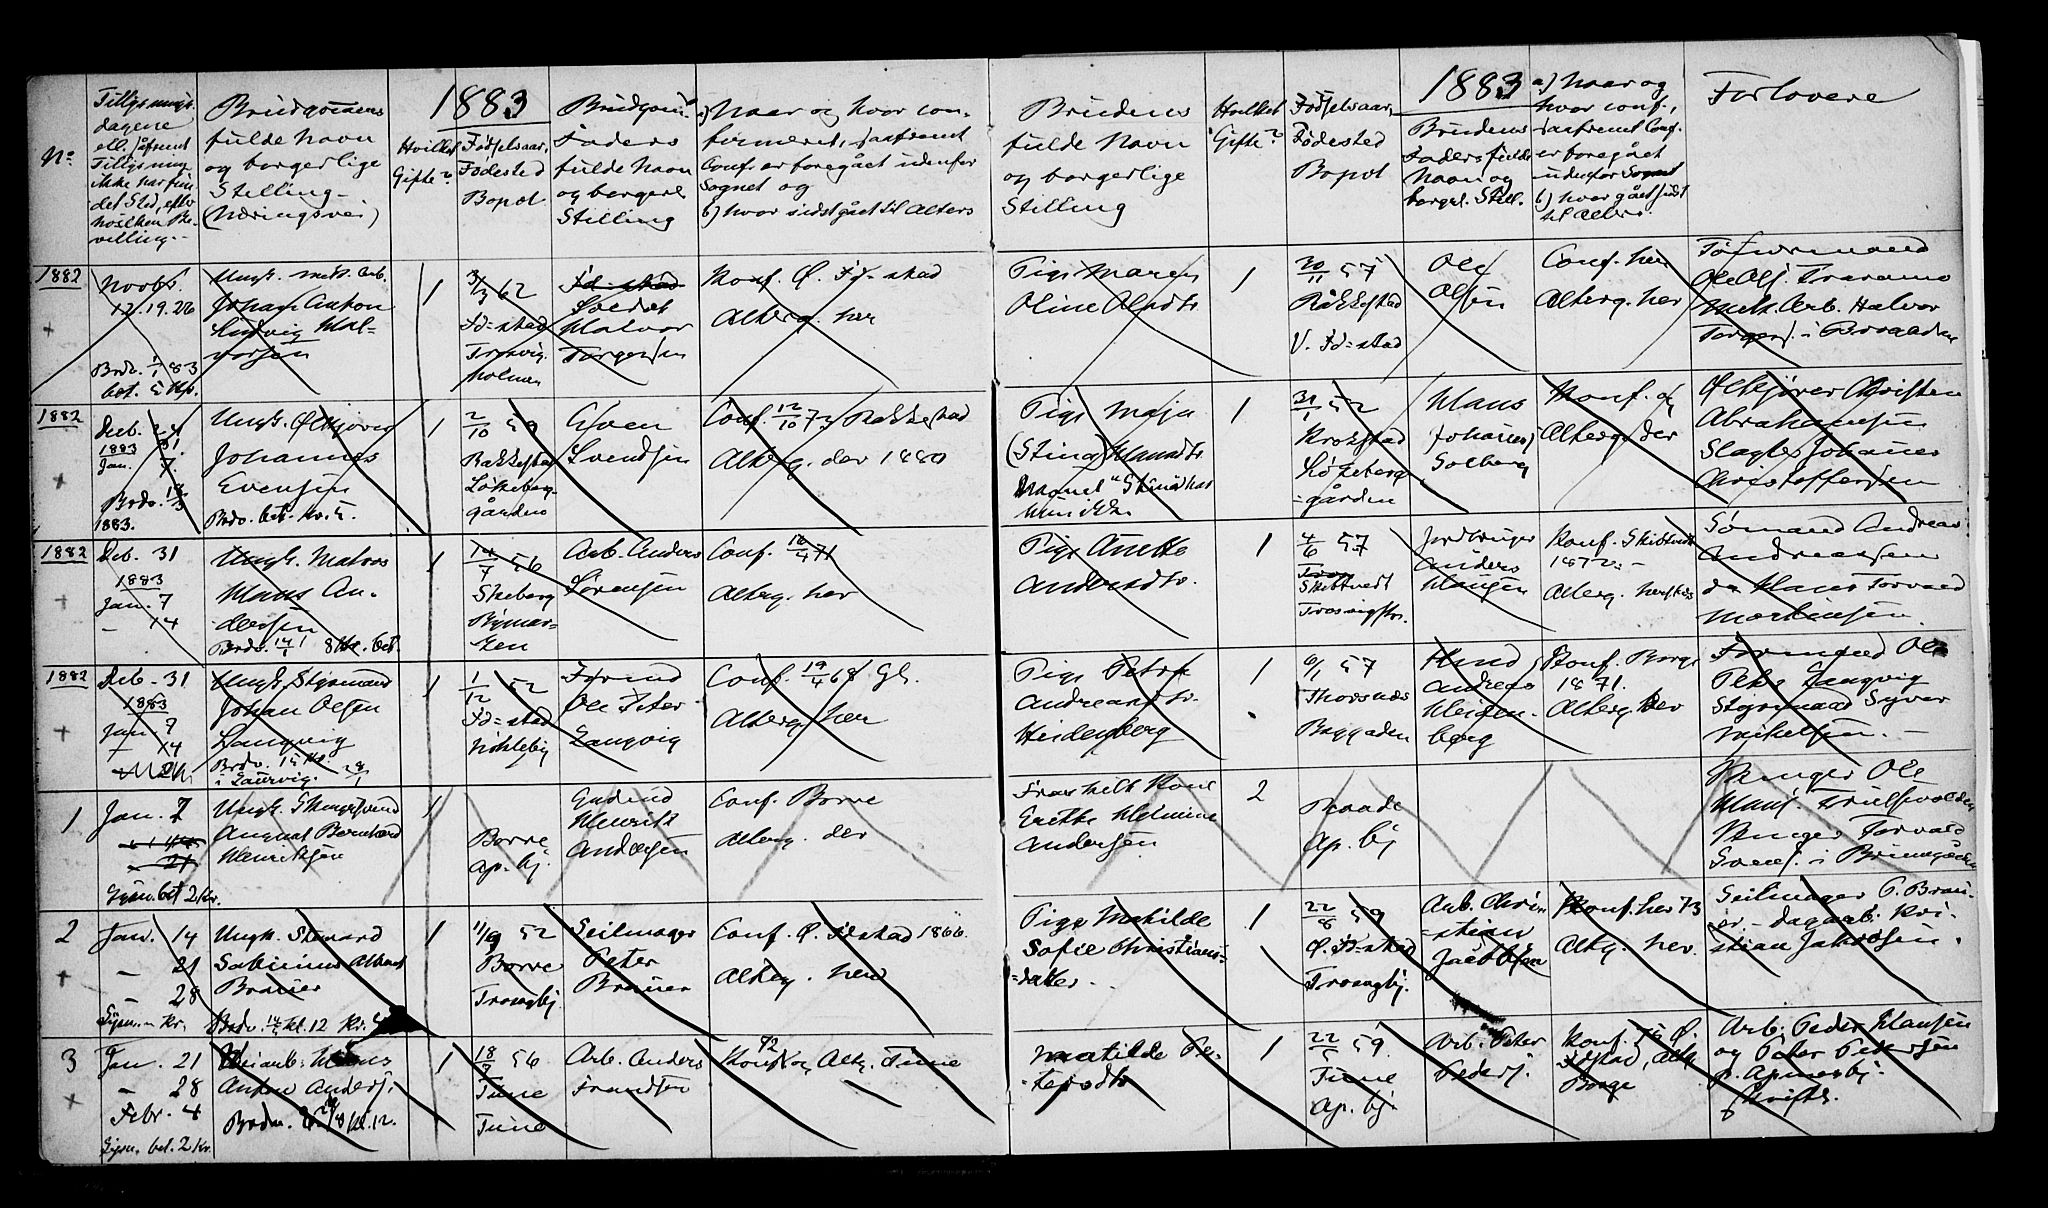 1883
1883
No
Tillysnings-
dagene
ell. saafremt
Tillysning
ikke har fun
det Sted, efter
hvilken Be-
villing.-
Brudgommens
fulde Navn
og borgerlige
Stilling-
(Næringsvei)
Hvilket
Gifte?
Fødselsaar,
Fødested
Bopæl
Brudgom.
Faders
fulde Navn
og borgerl.
Stilling
a) Naar og hvor con-
firmeret, saafremt
Conf. er foregået udenfor
Sognet og
b) hvor sidst gået til Alters
Brudens
fulde Navn
og borgerlige
Stilling
Hvilket
Gifte?
Fødselsaar,
Fødested
Bopæl
Brudens
Faders fulde
Navn og
borgerl. Still.
a) Naar og
hvor conf.,
saafremt Conf.
er foregået
udenfor Sognet
b) hvor gået sidst
til Alters.
Forlovere
1882
+
Novbr.
12. 19. 26
Brdv. 1/1 83
bet. 5 Kr.
Ungk.
Johan Anton
Ludvig Hal-
vorsen
1
62
Fd=stad
Trosvig
holmen
Fd=stad
Halvor
Torgersen
Konf. Ø. Fd=stad
Alterg. her
Pige Maren
Oline Olsdtr
1
30/11 57
Rakkestad
V. Fd=stad
Ole
Olsen
Conf. her
Alterg. her
Ole Ols.
Mek. Arb. Halvor
Torgers. i
1882
+
Decb. 24
31
1883
Jan. 7.
Brdv.
1883.
Ungk. Ølkjører
Johannes
Evensen
Brdv. bet. Kr. 5.
1
2/10 59
Rakkestad
Løkkeberg-
gården
Even
Svendsen
Conf. 12/10 73 Rakkestad
Alterg. der 1880
Pige Maja
(Stina) Hansdtr.
Navnet "Stina" har
hun ikke
1
31/1 52
Krokstad
Løkkeberg
-gården
Hans
Johannes
Solberg
Konf. og
Alterg. der
Ølkjører Christen
Abrahamsen
Slagter Johannes
Christoffersen
1882
+
Deb. 31
1883
Jan. 7
- 14
Ungk. Matros
Hans An-
dersen
Brdv. 14/1 8 Kr. bet.
1
14/7 56
Skeberg
Bjørnær-
ken
Arb. Anders
Sørensen
Conf. 16/4 71
Alterg. her
Pige Anette
Andersdtr.
1
4/6 57
Skibtvedt
Trosvigstr.
Jordbruger
Anders
Hansen
Konf. Skibtvedt
1872. -
Alterg. her
Sømand Andreas
Andreassen
do Hans Torvald
Mortensen.
1882
+
Deb. 31
1883
Jan. 7
- 14
Ungk. Styrmand
Johan Olsen
Langvig
Brdv. 15 Kr.
i Laurvig. 28/1
1
1/12 52
Fd=stad
Vikleby
Ole Peter
Langvig
Conf. 19/4 68 Gl.
Alterg. her
Pige Petra
Andreasdtr.
Heidenberg
1
6/1 57
Thorsnæs
Baggaden
Andreas
Heiden-
berg
Konf. Borge
1871.
Alterg. her
Formand Ole
Peter Langvig
Styrmand Syver
Mikelsen. -
1
Jan. 7
21
Lysn. bet 2 Kr.
Ungk.
August Bernhard
Henriksen
1
Borre
Ap. bj.
Henrik
Andersen
Conf. Borre
Alterg. der
Frask. Kone
Grethe Helmine
Andersen
2
Raade
Ap. bj
Ole
Torvald
Svens. i
2
+
Jan. 14
- 21
- 28
Lysn. - Kr.
Ungk. Steward
Sabinius Albert
Brauer
Brdv. kl. 12 Kr. 4
1
11/9 52
Borre
Trosvgbj.
Seilmager
Peter
Brauer
Conf. Ø. Fdstad 1866.
Alterg. her
Pige Mathilde
Sofie Christians=
=datter..
1
22/8 59
Ø. Fd=stad
Trosvgbj.
Arb. Chri-
=stian
Jacobsen
Konf. her 73
Altg. her.
Seilmager P. Brau-
er. - Dagarb. Kri-
stian Jakobsen.
3
+
Jan. 21
- 28
Febr. 4
Lysn. bet. 2 Kr.
Hans
Anton Anders.
kl. 12.
1
18/9 56
Tune
Tune
Arb. Anders
Frandsen
Konf. 72 og Altg. Tune
Matilde Pe-
-tersdtr
1
22/5 59.
Tune
Ap. bj.
Arb. Peter
Peders.
Konf. 75 Ø.
Fdstad, Altg
Borge
Arb. Peder Hansen
og Peter Petersen
p. Apenesbj.